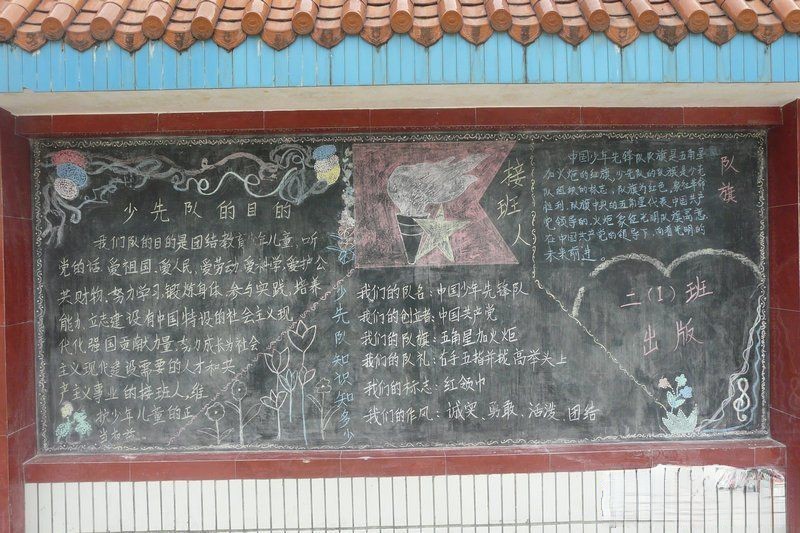 少先队的目的
我们队的目的是团结教育少年儿童,听
党的话,爱祖国,爱人民,爱劳动,爱科学,爱护公
共财物,努力学习,锻炼身体,参与实践,培养
能力,立志建设有中国特设的社会主义现
代化强国贡献力量,努力成长为社会
主义现代化建设需要的人才和共
产主义事业的接班人,维
护少年儿童的正
当权益。
少先队知识知多少
接班人
我们的队名:中国少年先锋队
我们的创立者:中国共产党
我们的队旗:五角星加火炬
我们的队礼:右手五指并拢高举头上
我们的标志:红领巾
我们的作风:诚实、勇敢、活泼、团结
队旗
中国少年先锋队队旗是五角星
加火炬的红旗,少先队的队旗是少先
队组织的标志,队旗为红色,象征革命
胜利,队旗中央的五角星代表中国共产
党领导的,火炬象征光明队旗高意
在中国共产党的领导下,向着光明的
未来前进。
二(1)班
出版